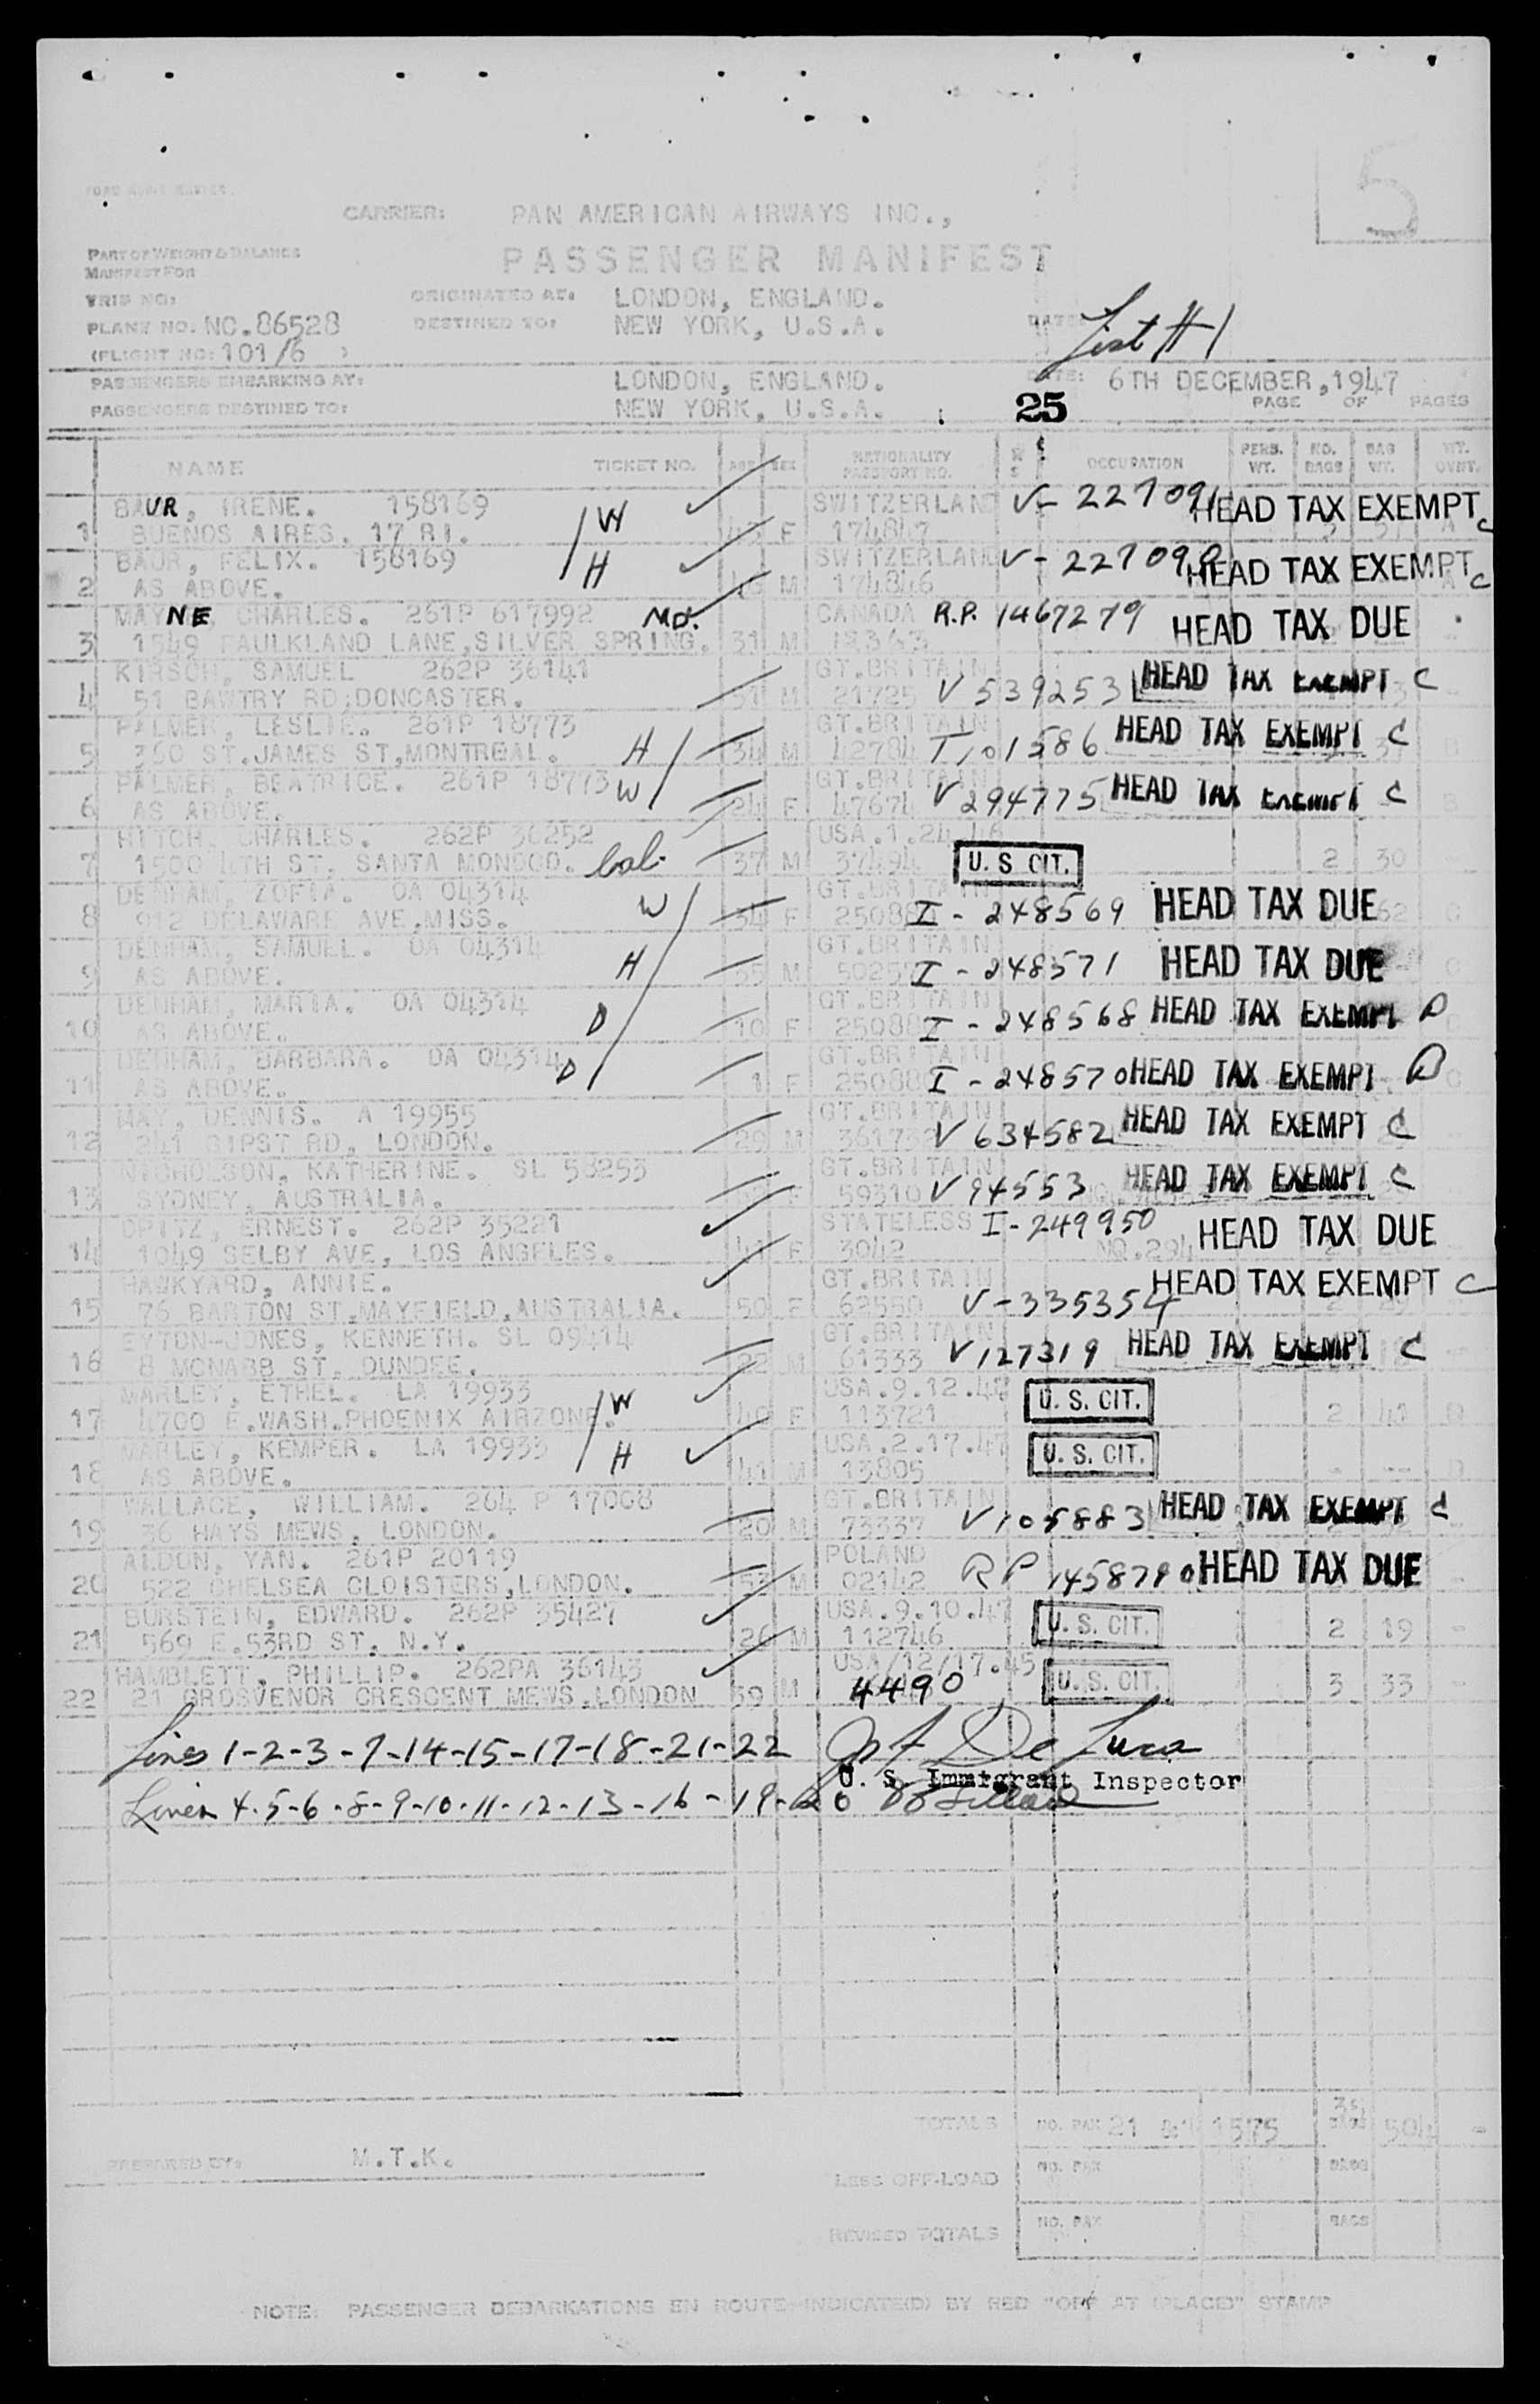 5
CARRIER: PAN AMERICAN AIRWAYS INC.,
PART OF WEIGHT & BALANCE
MANIFEST FOR
PASSENGER MANIFEST
TRIP NO:
ORIGINATED AT: LONDON, ENGLAND.
PLANE NO. NC.86528 DESTINED TO: NEW YORK, U.S.A. DATE:
List #1
(FLIGHT NO: 101/6 )
PASSENGERS EMBARKING AT: LONDON, ENGLAND. DATE: 6TH DECEMBER, 1947
PASSENGERS DESTINED TO: NEW YORK, U.S.A. 25 PAGE OF PAGES
NAME TICKET NO. AGE SEX NATIONALITY PASSPORT NO. OCCUPATION PERS. WT. NO. BAGS BAG WT. WT. OVNT.
BAUR, IRENE. 158169 W SWITZERLAND V-227091 HEAD TAX EXEMPT C
1 BUENOS AIRES. 17 RI. F 174847
BAUR, FELIX. 158169 H SWITZERLAND V-227090 HEAD TAX EXEMPT C
2 AS ABOVE. M 174846
MAYNE CHARLES. 261P 617992 MD. CANADA R.P. 1467279 HEAD TAX DUE
3 1549 FAULKLAND LANE, SILVER SPRING. 31 M
KIRSCH, SAMUEL 262P 36141 GT.BRITAIN HEAD TAX EXEMPT C
4 51 BAWTRY RD;DONCASTER. 31 M 21725 V 539253
PALMER, LESLIE. 261P 18773 GT.BRITAIN HEAD TAX EXEMPT C
5 360 ST.JAMES ST,MONTREAL. H 34 M 42784 T,01586
PALMER, BEATRICE. 261P 18773 W GT.BRITAIN HEAD TAX EXEMPT C
6 AS ABOVE. 24 F 47674 V 294775
HITCH, CHARLES. 262P 36252 USA.1.24.46
7 1500 4TH ST, SANTA MONOCO. Cal. 37 M 37494 U.S CIT. 2 30
DENHAM, ZOFIA. OA 04314 W GT.BRITAIN
8 912 DELAWARE AVE,MISS. 34 F I - 248569 HEAD TAX DUE
DENHAM, SAMUEL. OA 04314 GT.BRITAIN
9 AS ABOVE. H 35 M I - 248571 HEAD TAX DUE
DENHAM, MARIA. OA 04314 GT.BRITAIN
10 AS ABOVE. D 10 F I - 248568 HEAD TAX EXEMPT D
DENHAM, BARBARA. OA 04314 D GT.BRITAIN
11 AS ABOVE. 1 F I - 248570 HEAD TAX EXEMPT D
MAY, DENNIS. A 19955 GT.BRITAIN
12 241 GIPST RD, LONDON. 29 M V 634582 HEAD TAX EXEMPT C
NICHOLSON, KATHERINE. SL 58253 GT.BRITAIN
13 SYDNEY, AUSTRALIA. F 59310 V 94553 HEAD TAX EXEMPT C
OPITZ, ERNEST. 262P 35221 STATELESS I-249950
14 1049 SELBY AVE, LOS ANGELES. F 3042 HEAD TAX DUE
HAWKYARD, ANNIE. GT.BRITAIN HEAD TAX EXEMPT C
15 76 BARTON ST,MAYFIELD,AUSTRALIA. 50 F 62550 V-335354
EYTON-JONES, KENNETH. SL 09414 GT.BRITAIN
16 8 MCNABB ST, DUNDEE. 22 M 61333 V127319 HEAD TAX EXEMPT C
MARLEY, ETHEL. LA 19933 W USA.9.12.47
17 4700 E.WASH.PHOENIX AIRZONE. 40 F 113721 U.S. CIT. 2 41
MARLEY, KEMPER. LA 19933 H USA.2.17.47
18 AS ABOVE. 41 M 13805 U.S. CIT.
WALLACE, WILLIAM. 264 P 17008 GT.BRITAIN
19 36 HAYS MEWS, LONDON. 20 M 73337 V105883 HEAD TAX EXEMPT C
ALDON, YAN. 261P 20119 POLAND
20 522 CHELSEA CLOISTERS,LONDON. 53 M 02142 RP 1458790 HEAD TAX DUE
BURSTEIN, EDWARD. 262P 35427 USA.9.10.47
21 569 E.53RD ST. N.Y. 26 M 112746 U.S. CIT. 2 19 -
HAMBLETT, PHILLIP. 262PA 36143 USA/12/17.45
22 21 GROSVENOR CRESCENT MEWS,LONDON 39 M 4490 U.S. CIT. 3 33 -
Lines 1-2-3-7-14-15-17-18-21-22
U. S. Immigrant Inspector
Lines 4-5-6-8-9-10-11-12-13-16-19-20
TOTALS NO. PAX 21 1575 35 BAGS 504 -
PREPARED BY: M.T.K.
LESS OFF-LOAD NO. PAX BAGS
REVISED TOTALS NO. PAX BAGS
NOTE: PASSENGER DEBARKATIONS EN ROUTE INDICATE(D) BY RED "OFF AT (PLACE)" STAMP